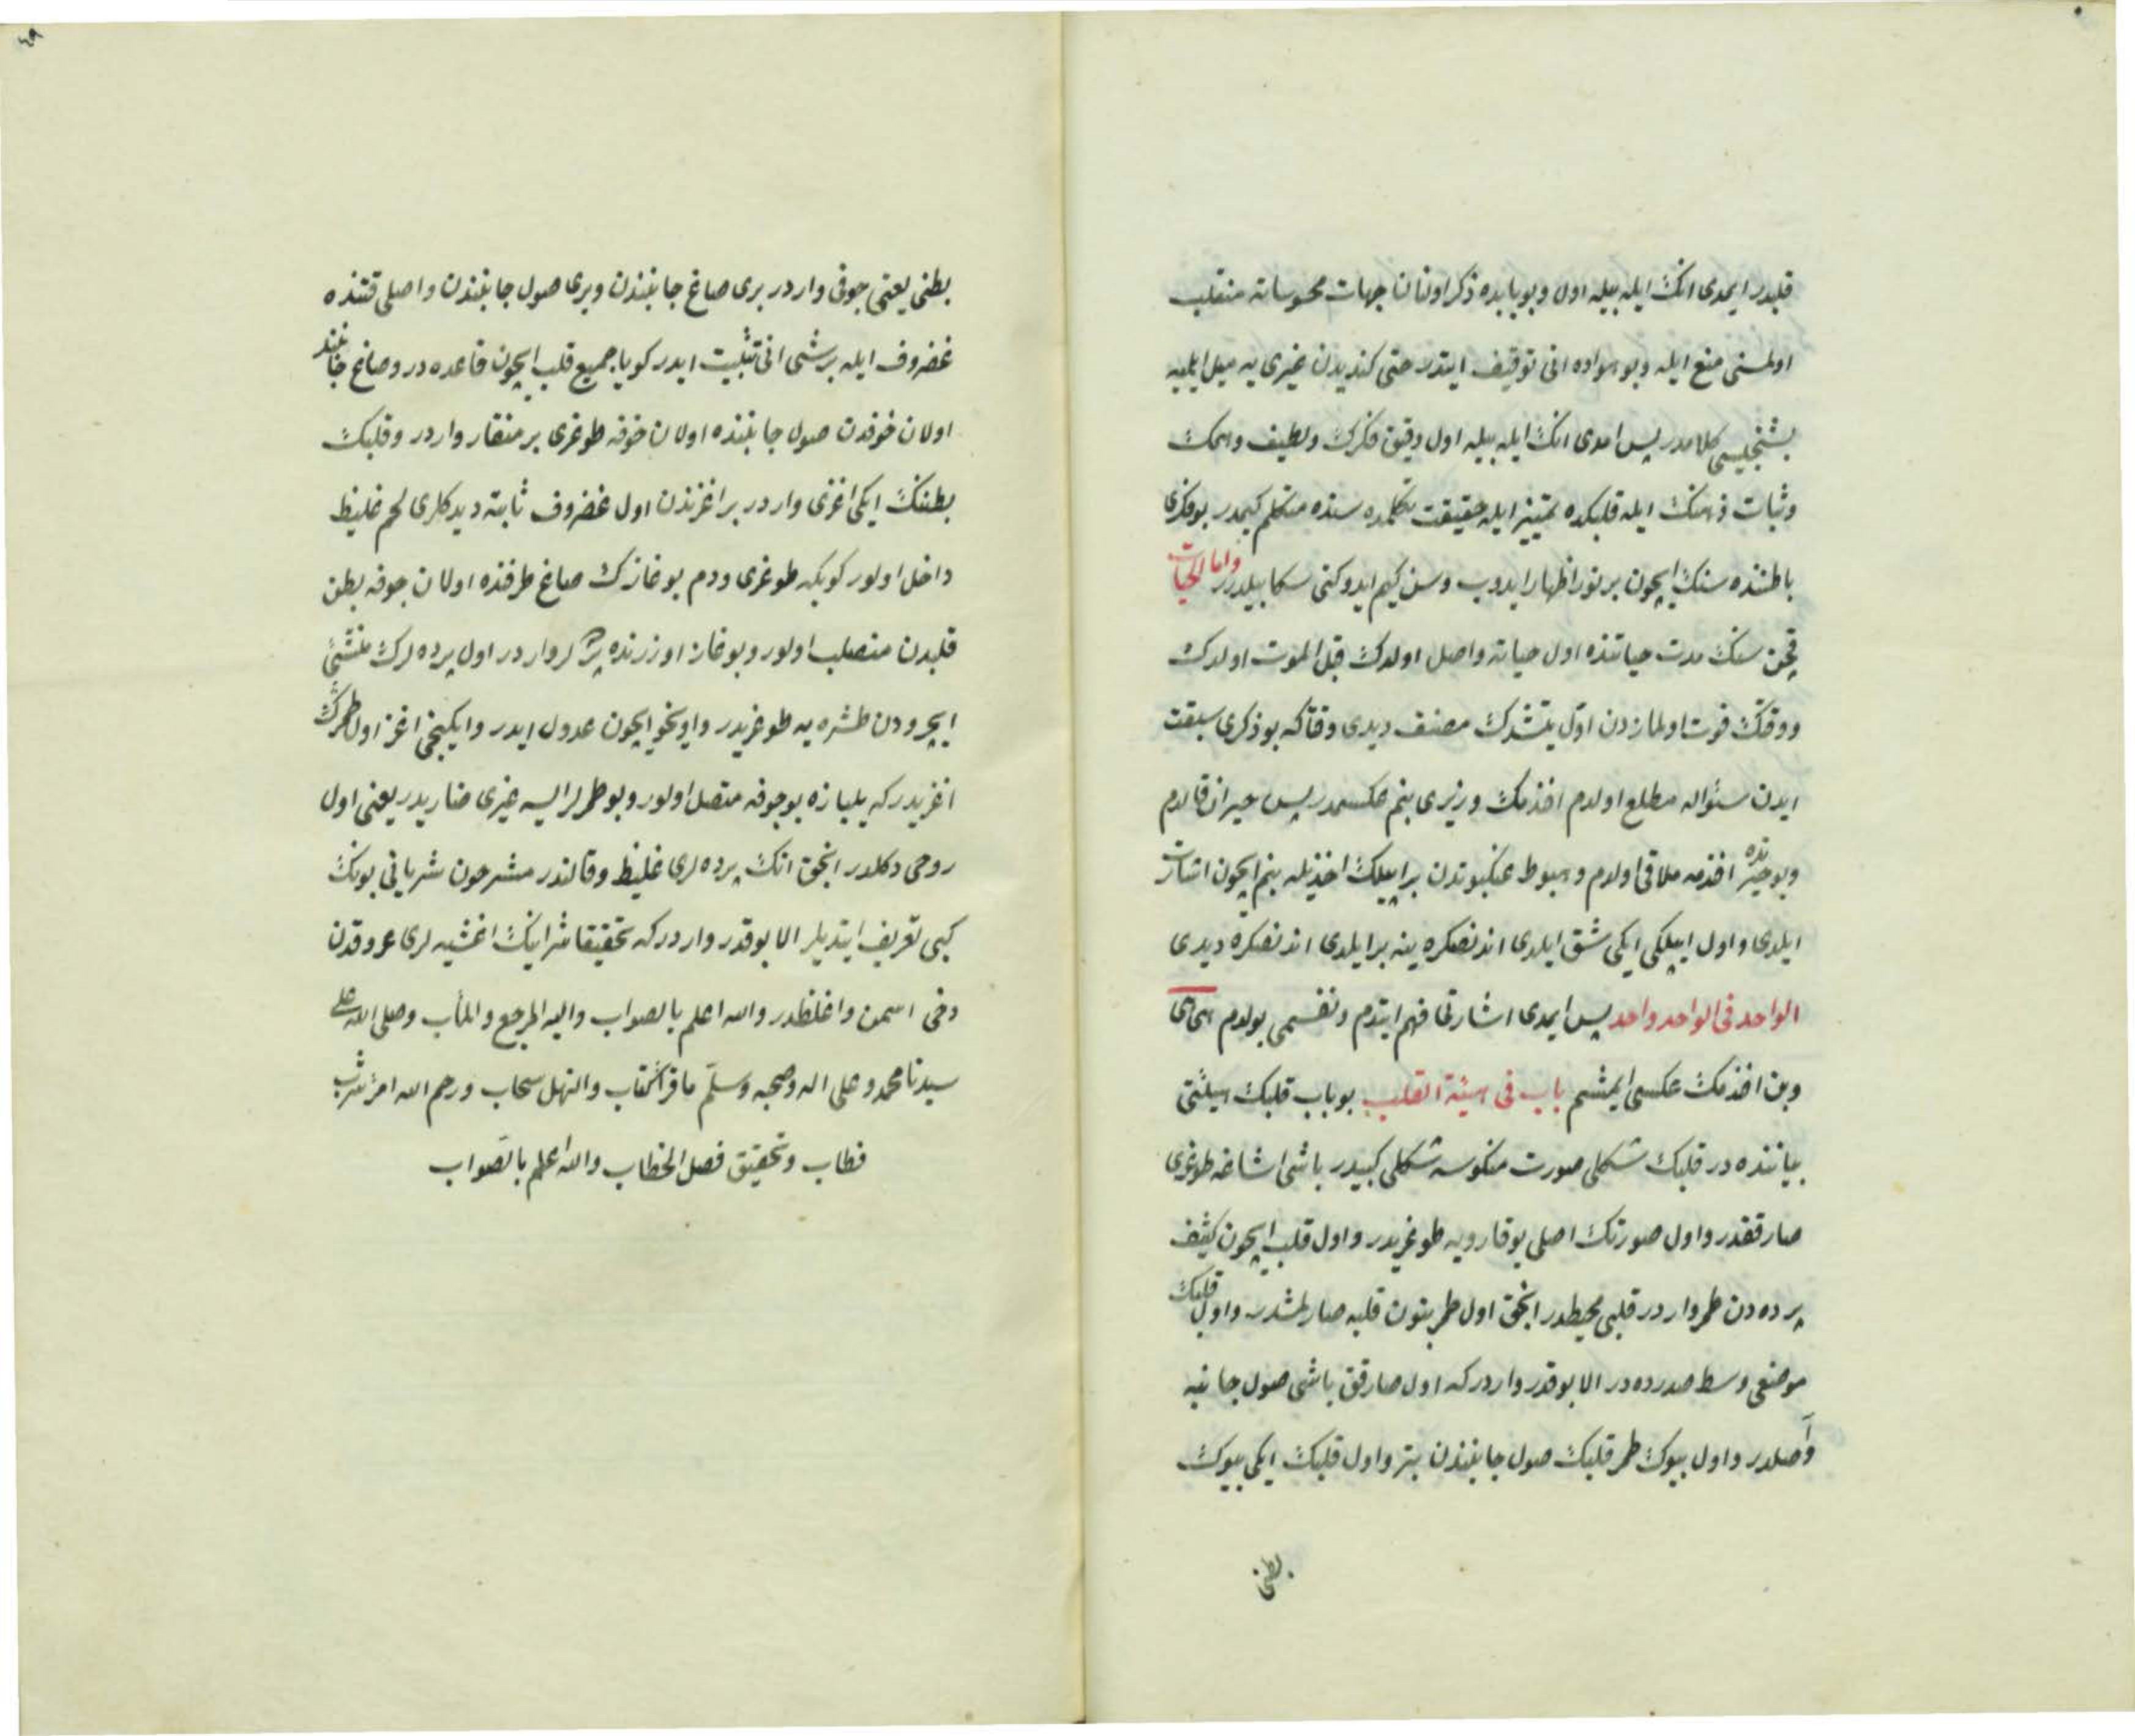 قلبدر ایمدی انك ایله بیله اول وبوبابده ذكر اولنان جهات محسوساته منقلب
اولمسنی منع ایله وبو هواده انی توقیف ایتدر حتی كندیدن غیری یه میل ایلمیه
بشنجیسی كلامدر پس امدی انك ایله بیله اول دقیق فكرك ولطیف وهمك
وثبات ذهنك ایله قلبكده تمییز ایله حقیقت تكلمده سنده متكلم كیمدر بو فكری
باطننده سنك ایچون بر نور اظهار ایدوب وسن كیم ایدوكنی سكا بیلدرر واما الحیات
قچن سنك مدت حیاتنده اول حیاته واصل اولدك قبل الموت اولدك
ووقتك فوت اولمازدن اوّل یتشدك مصنف دیدی وقتاكه بو ذكری سبقت
ایدن سئواله مطلع اولدم افندمك وزیری بنم عكسمدر پس حیران قالدم
وبو حیرتده افندمه ملاقی اولدم وهبوط عنكبوتدن بر ایپلك اخذیله بنم ایچون اشارت
ایلدی واول ایپلكی ایكی شق ایلدی اندنصكره ینه بر ایلدی اندنصكره دیدی
الواحد فی الواحد واحد پس ایمدی اشارتی فهم ایتدم ونفسمی بولدم
وبن افندمك عكسی ایمشم باب فی هیئة القلب بو باب قلبك هیئتی
بیاننده در قلبك شكلی صورت منكوسه شكلی كبیدر باشی اشاغه طوغری
صارققدر واول صورتك اصلی یوقارویه طوغریدر واول قلب ایچون كثیف
پرده دن طمر واردر قلبی محیطدر انجق اول طمر بتون قلبه صارلمشدر واول قلبك
موضعی وسط صدرده در الا بو قدر واردركه اول صارقق باشی صول جانبه
واصلدر واول بیوك طمر قلبك صول جانبندن بتر واول قلبك ایكی بیوك
بطنی
٤٩
بطنی یعنی جوفی واردر بری صاغ جانبندن وبری صول جانبندن واصلی قتنده
غضروف ایله بر شی انی تثبیت ایدر كویا جمیع قلب ایچون قاعده در وصاغ جانبنده
اولان خوفدن صول جانبنده اولان خوفه طوغری بر منقار واردر وقلبك
بطننك ایكی اغزی واردر بر اغزندن اول غضروف ثابته دیدكلری لحم غلیظ
داخل اولور كوبكه طوغری ودم بوغازك صاغ طرفنده اولان جوفه بطن
قلبدن منصلب اولور وبوغاز اوزرنده واردر اول پرده لرك منشئی
ایچرودن طشره یه طوغریدر واونخو ایچون عدول ایدر وایكنجی اغز اول طمرك
اغزیدركه یلیازه بو جوفه متصل اولور وبو طمرلر ایسه غیری ضاریدر یعنی اول
روحی دكلدر انجق انك پرده لری غلیظ وقالندر مشرحون شریانی بونك
كبی تعریف ایتدیلر الا بو قدر واردركه تحقیقا شراینك اغشیه لری عروقدن
دخی اسمن واغلظدر والله اعلم بالصواب والیه المرجع والمأب وصلی الله علی
سیدنا محمد وعلی اله وصحبه وسلّم ما قرأ كتاب وانهل سحاب ورحم الله امرئ
فطاب وتحقیق فصل الخطاب والله اعلم بالصواب